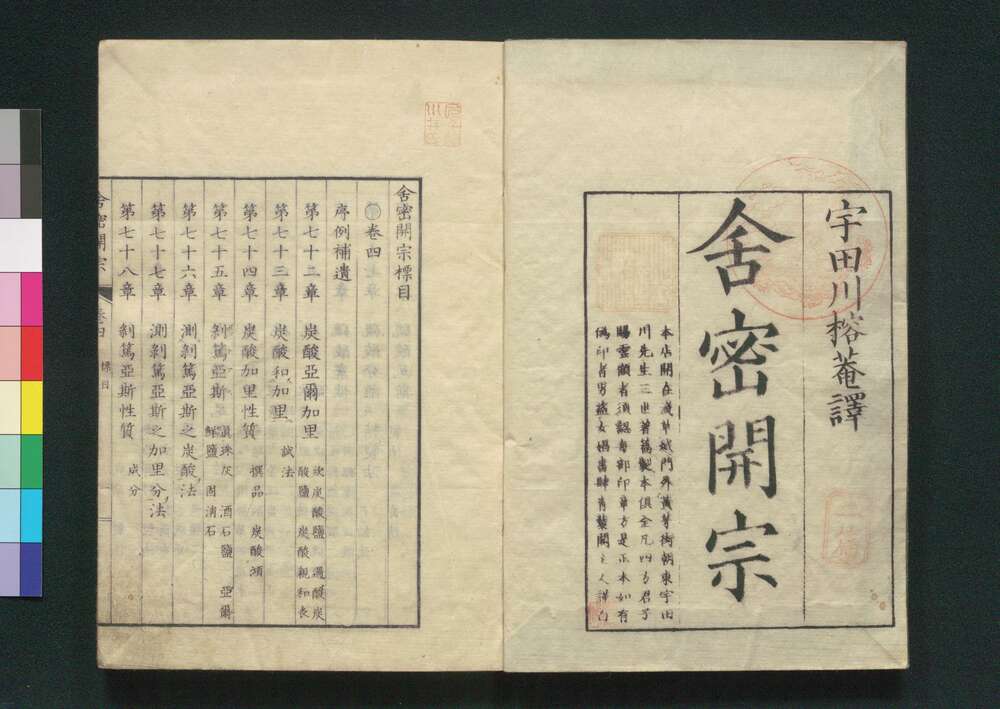 宇田川榕菴譯
舍密開宗
本店開在浅草城門外茅町街朝東宇田
川先生三世著藁製本俱全凡四方君子
賜雲顧者須認每部印章方是正本如有
偽印者男盗女娼書肆青藜閣主人謹白
舍密開宗標目
卷四
序例補遺
第七十二章 炭酸亞爾加里 炭酸鹽 過酸炭酸鹽 炭酸親和表
第七十三章 炭酸和加里 試法
第七十四章 炭酸加里性質 撰品 炭酸頌
第七十五章 剝篤亞斯 真珠灰 酒石鹽 亞爾鮮鹽 固淸石
第七十六章 測剝篤亞斯之炭酸法
第七十七章 測剝篤亞斯之加里分法
第七十八章 剝篤亞斯性質 成分
舍密開宗 卷四 標目